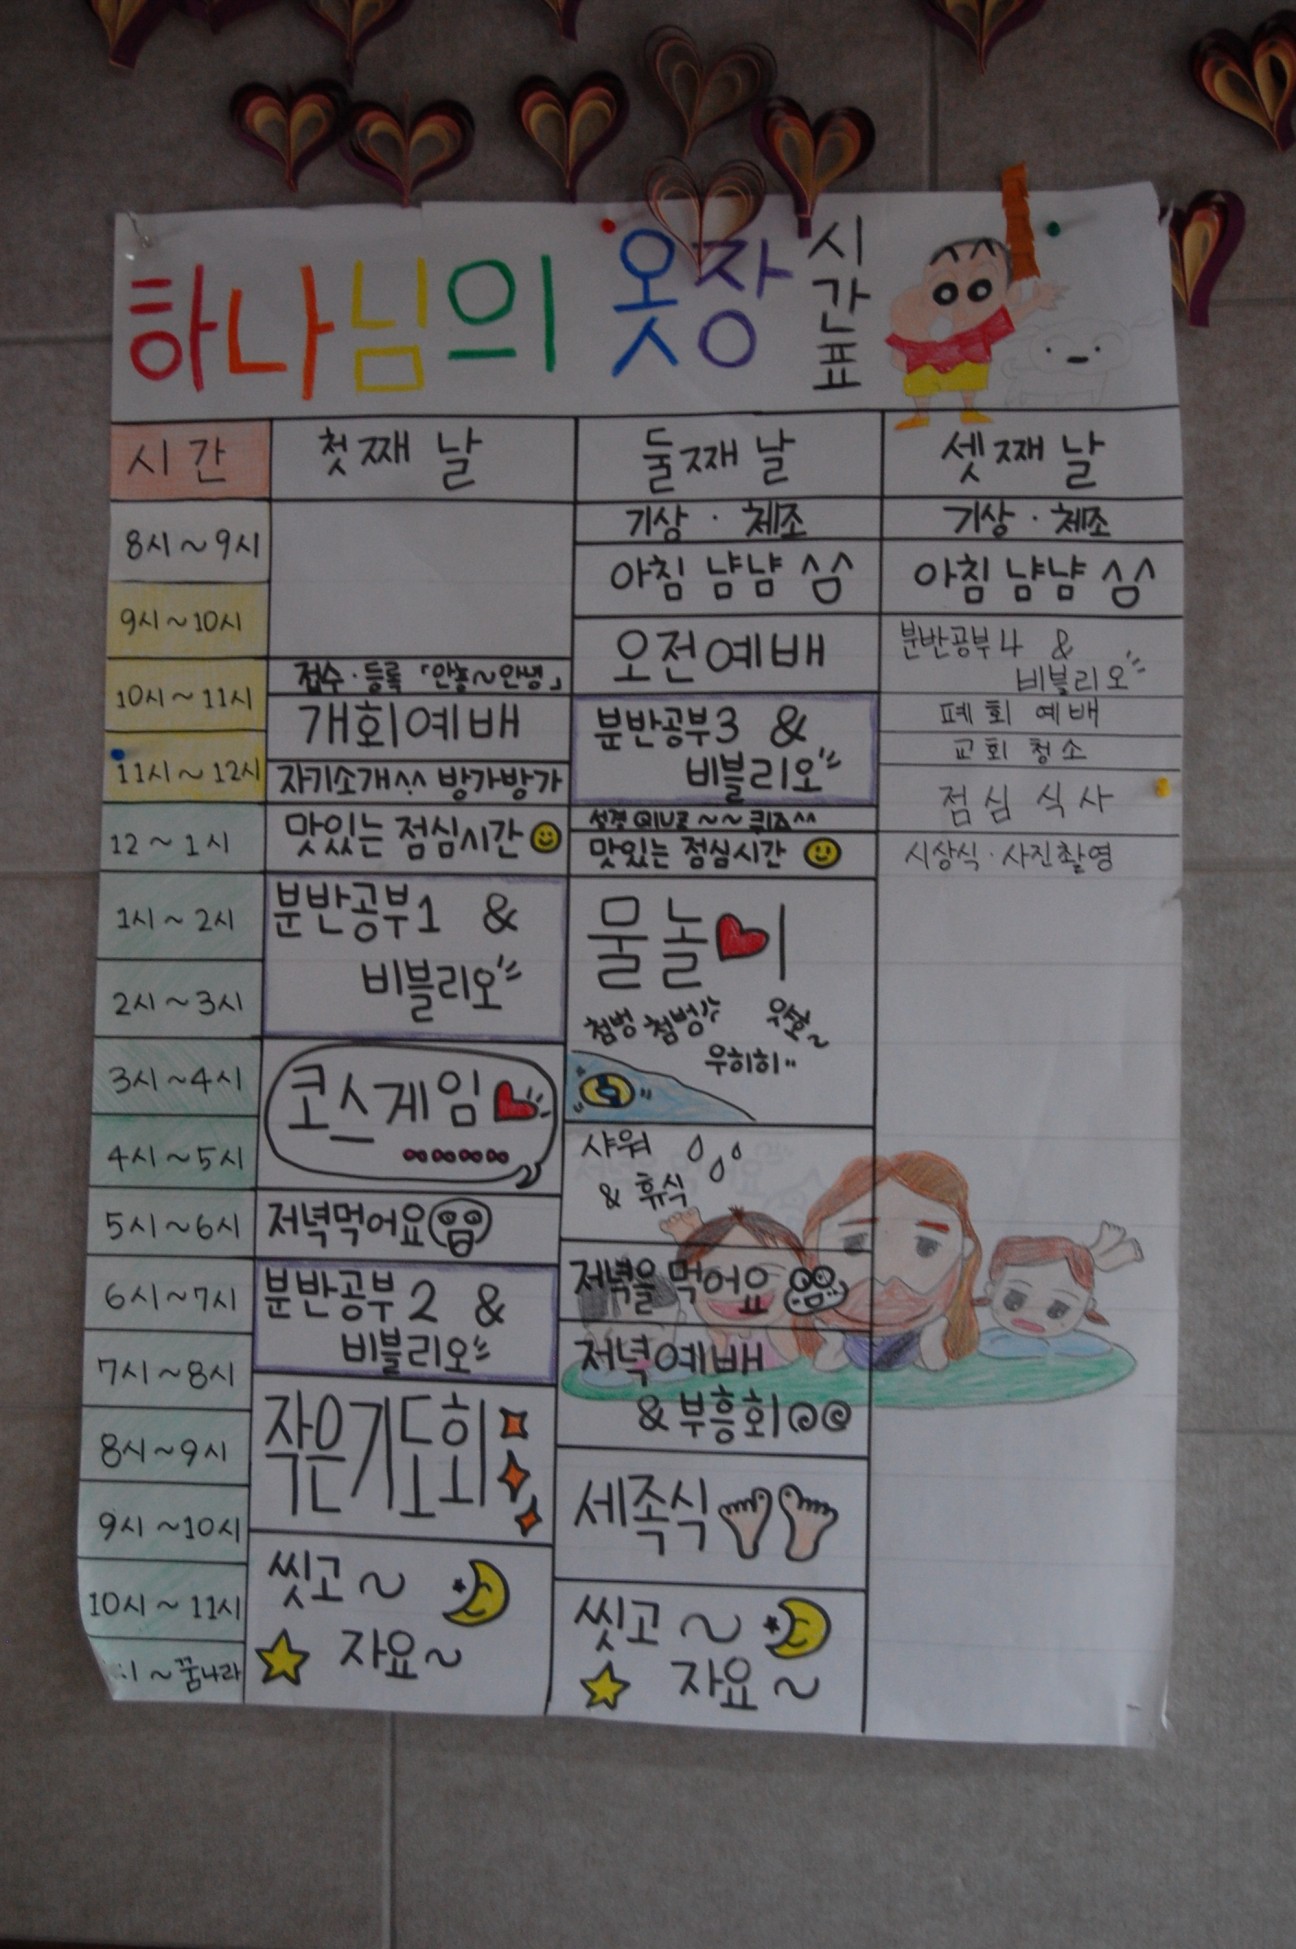 하나님의 옷장 시간표
시간 첫째 날 둘째 날 셋째 날
8시~9시
9시~10시
10시~11시
11시~12시
12~1시
1시~2시
2시~3시
3시~4시
4시~5시
5시~6시
6시~7시
7시~8시
8시~9시
9시~10시
10시~11시
~꿈나라
접수·등록 「안뇽~안녕」
개회예배
자기소개^^ 방가방가
맛있는 점심시간
분반공부1 &
비블리오"
코스게임
저녁먹어요
분반공부2 &
비블리오"
작은기도회
씻고~
자요~
기상·체조
아침 냠냠 ^^
오전예배
분반공부3 &
비블리오"
성경 QIUZ ~~ 퀴즈^^
맛있는 점심시간
물놀이
첨벙 첨벙
얏호~
우히히
샤워
& 휴식
저녁을 먹어요
저녁예배
& 부흥회
세족식
씻고~
자요~
기상·체조
아침 냠냠 ^^
분반공부4 &
비블리오"
폐회 예배
교회 청소
점심 식사
시상식·사진촬영